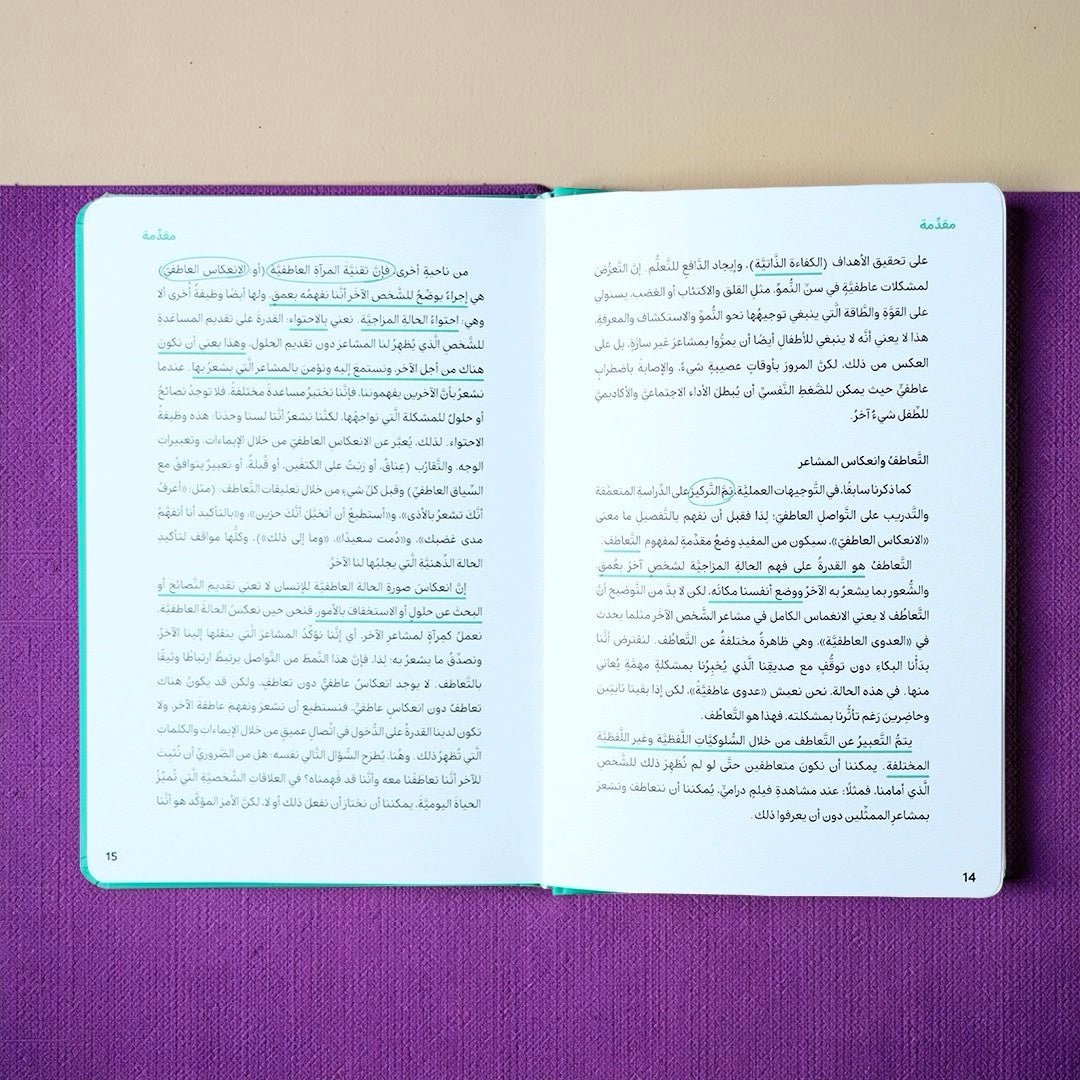 مقدِّمة
على تحقيق الأهداف (الكفاءة الذَّاتيَّة)، وإيجاد الدَّافع للتعلُّم. إنَّ التعرُّض
لمشكلات عاطفيَّةٍ في سنِّ النُّموِّ، مثل القلق والاكتئاب أو الغضب، يستولي
على القوَّة والطَّاقة الَّتي ينبغي توجيهُها نحو النُّموِّ والاستكشاف والمعرفة.
هذا لا يعني أنَّه لا ينبغي للأطفال أيضًا أن يمرُّوا بمشاعر غير سارَّةٍ، بل على
العكس من ذلك، لكنَّ المرورَ بأوقاتٍ عصيبةٍ شيءٌ، والإصابةَ باضطرابٍ
عاطفيٍّ حيث يمكن للضَّغط النَّفسيِّ أن يُبطلَ الأداء الاجتماعيَّ والأكاديميَّ
للطِّفل شيءٌ آخرُ.
التَّعاطفُ وانعكاس المشاعر
كما ذكرنا سابقًا، في التَّوجيهات العمليَّة، تمَّ التَّركيزُ على الدِّراسةِ المتعمِّقة
والتَّدريب على التَّواصل العاطفيِّ؛ لِذا فقبل أن نفهم بالتَّفصيل ما معنى
«الانعكاس العاطفيّ»، سيكون من المفيدِ وضعُ مقدِّمةٍ لمفهوم التَّعاطف.
التَّعاطفُ هو القدرةُ على فهم الحالةِ المزاجيَّة لشخصٍ آخرَ بعُمقٍ،
والشُّعور بما يشعرُ به الآخرُ ووضع أنفسنا مكانَه. لكن لا بدَّ من التَّوضيح أنَّ
التَّعاطُف لا يعني الانغماس الكامل في مشاعر الشَّخص الآخر مثلما يحدث
في «العدوى العاطفيَّة»، وهي ظاهرةٌ مختلفةٌ عن التَّعاطُف. لنفترض أنَّنا
بدَأنا البكاء دون توقُّفٍ مع صديقِنا الَّذي يُخبِرُنا بمشكلةٍ مهمَّةٍ يُعاني
منها، في هذه الحالة، نحن نعيش «عدوى عاطفيَّةً»، لكن إذا بقينا ثابتين
وحاضِرين رَغم تأثُّرنا بمشكلته، فهذا هو التَّعاطُف.
يتمُّ التَّعبيرُ عن التَّعاطف من خلال السُّلوكيَّاتِ اللَّفظيَّة وغير اللَّفظيَّة
المختلفة. يمكننا أن نكونَ متعاطفين حتَّى لو لم نُظهِرْ ذلك للشَّخص
الَّذي أمامنا، فمثلًا: عند مشاهدةِ فيلمٍ دراميٍّ، يُمكننا أن نتعاطفَ ونشعرَ
بمشاعرِ الممثِّلين دون أن يعرفوا ذلك.
14
مقدِّمة
من ناحيةٍ أخرى، فإنَّ تقنيَّة المرآة العاطفيَّة (أو الانعكاس العاطفيّ)
هي إجراءٌ يوضِّحُ للشَّخص الآخر أنَّنا نفهمُه بعمقٍ، ولها أيضًا وظيفةٌ أخرى ألا
وهي: احتواءُ الحالة المزاجيَّة. نعني بالاحتواء: القدرةَ على تقديمِ المساعدةِ
للشَّخصِ الَّذي يُظهِرُ لنا المشاعرَ دون تقديم الحلول، وهذا يعني أن نكون
هناك من أجل الآخر، ونستمعَ إليه ونؤمن بالمشاعر الَّتي يشعرُ بها. عندما
نشعرُ بأنَّ الآخرين يفهموننا، فإنَّنا نختبرُ مساعدةً مختلفةً، فلا توجدُ نصائحُ
أو حلولٌ للمشكلة الَّتي نواجهُها، لكنَّنا نشعرُ أنَّنا لسنا وحدَنا: هذه وظيفةُ
الاحتواء. لذلك، يُعبَّر عن الانعكاسِ العاطفيّ من خلال الإيماءات، وتعبيراتِ
الوجه، والتَّقارُب (عِناقٌ، أو ربتٌ على الكتفَين، أو قُبلةٌ، أو تعبيرٌ يتوافقُ مع
السِّياق العاطفيّ) وقبل كلِّ شيءٍ من خلال تعليقات التَّعاطف: (مثل: «أعرفُ
أنَّكَ تشعرُ بالأذى»، و«أستطيعُ أن أتخيَّلَ أنَّكَ حزين»، و«بالتأكيد أنا أتفهَّمُ
مدى غضبك»، و«دُمت سعيدًا»، «وما إلى ذلك»)، وكلُّها مواقف لتأكيدِ
الحالة الذِّهنيَّةِ الَّتي يجلبُها لنا الآخرُ.
إنَّ انعكاسَ صورةِ الحالة العاطفيَّة للإنسان لا تعني تقديمَ النَّصائح أو
البحثَ عن حلولٍ أو الاستخفافَ بالأمور، فنحن حين نعكسُ الحالةَ العاطفيَّة،
نعملُ كمِرآةٍ لمشاعرِ الآخر، أي إنَّنا نؤكِّدُ المشاعرَ الَّتي ينقلها إلينا الآخرُ،
ونصدِّقُ ما يشعرُ به؛ لِذا، فإنَّ هذا النَّمطَ من التَّواصل يرتبطُ ارتباطًا وثيقًا
بالتَّعاطف. لا يوجد انعكاسٌ عاطفيٌّ دون تعاطفٍ، ولكن قد يكونُ هناك
تعاطفٌ دون انعكاسٍ عاطفيٍّ، فنستطيع أن نشعرَ ونفهمَ عاطفةَ الآخر، ولا
تكون لدينا القدرةُ على الدُّخول في اتِّصالٍ عميقٍ من خلال الإيماءات والكلماتِ
الَّتي تُظهرُ ذلك. وهُنا، يُطرَح السُّؤال التَّالي نفسه: هل من الضَّروريِّ أن نُثبِتَ
للآخرِ أنَّنا تعاطَفْنا معه وأنَّنا قد فَهِمناه؟ في العلاقات الشَّخصيَّةِ الَّتي تُميِّزُ
الحياةَ اليوميَّة، يمكننا أن نختارَ أن نفعلَ ذلك أو لا، لكنَّ الأمرَ المؤكَّد هو أنَّنا
15